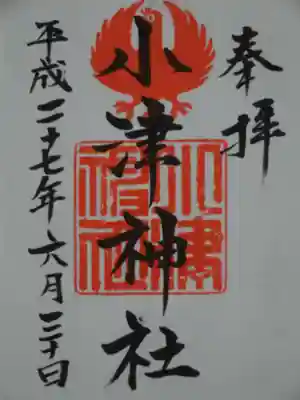 奉拝
小津神社
平成二十七年六月二十日
小津神社